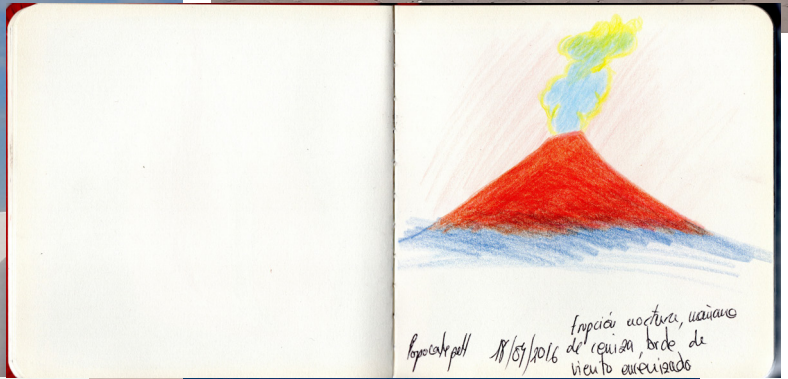 Popocatepetl 18/04/2016
Erupción nocturna, mañana
de ceniza, tarde de
viento encenizado